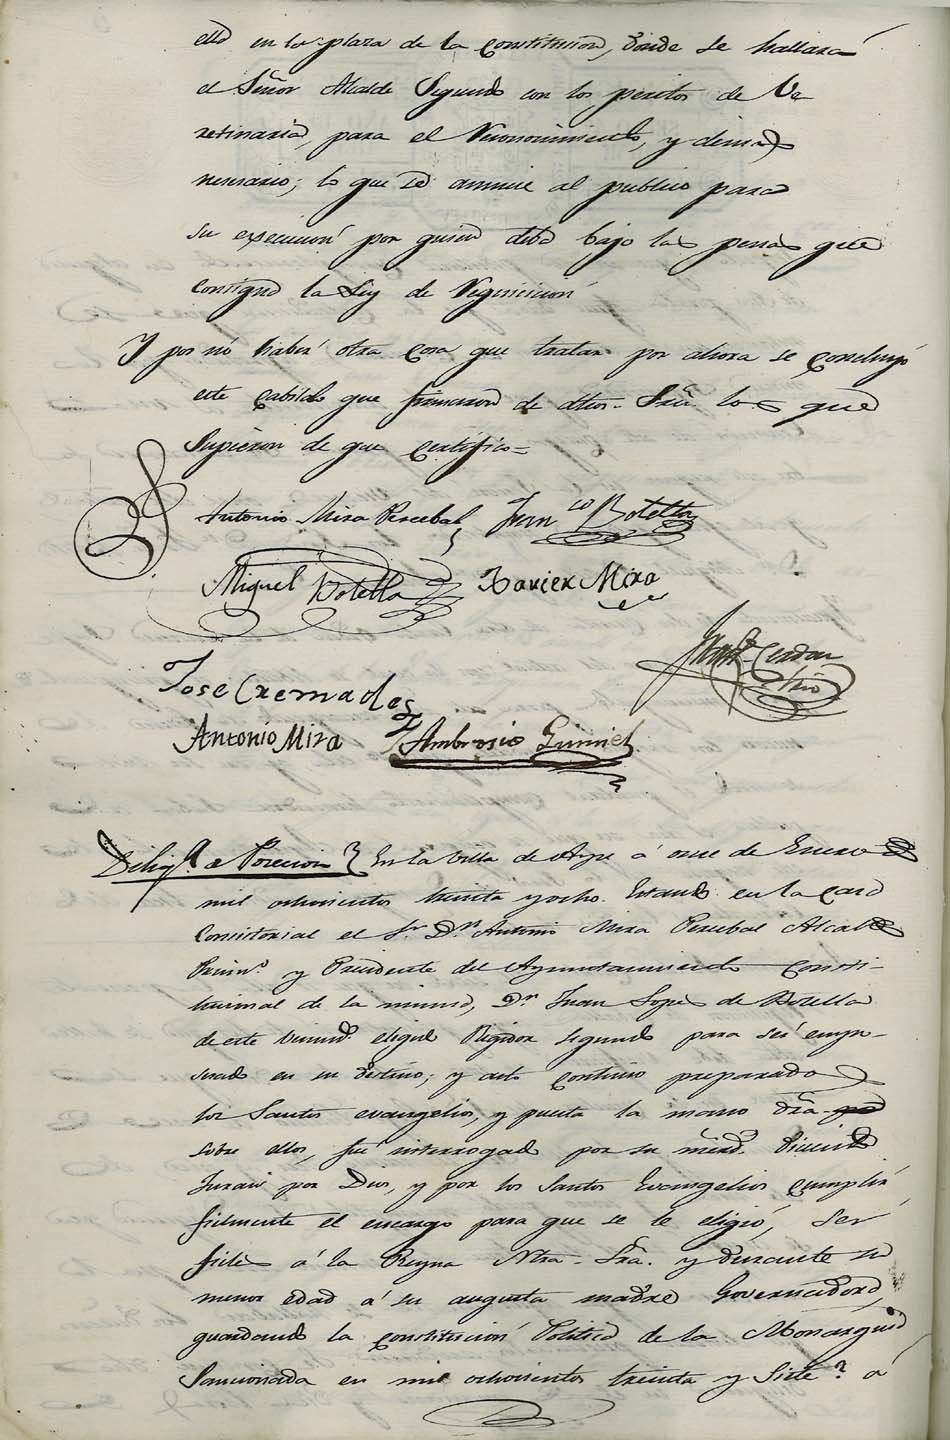 en la plaza de la Constitucion, donde se hallará
el Señor Alcalde Segundo con los peritos de Ve
terinaria, para el Reconocimiento, y demas
necesario; lo que se anuncie al publico para
su execucion por quien deba bajo las penas que
consigna la Ley de Requisicion
Y por nó haber otra cosa que tratar por ahora se concluyó
este Cabildo que firmaron de dhos. Sres. los que
Supieron de que certifico=
Antonio Mira Percebal Juan co Botella
Miguel Botella Xavier Mira
Cerdan
Srio
Jose Cremades
Antonio Mira Ambrosio Gimiel
Diliga. a Posecion En la Villa de Aspe á once de Enero de
mil ochocientos treinta y ocho. Estando en la casa
Consistorial el Sr. Dn. Antonio Mira Percebal Alcalde
Primo. y Presidente del Ayuntamiento Consti-
tucional de la misma, Dn Juan Lopes de Botella
de este vecindo. elegido Regidor segundo para ser empo-
sesado en su destino; y acto continuo preparado
los Santos evangelios, y puesta la mano dra.
sobre ellos, fué interrogado por su merd. diciendo
Jurais por Dios, y por los Santos Evangelios cumplir
fielmente el encargo para que se le eligió, ser
fieles á la Reyna Ntra. Sra. y durante su
menor edad á su augusta madre Governadora,
guardando la constitucion Politica de la Monarquia
Sancionada en mil ochocientos treinta y Siete? á